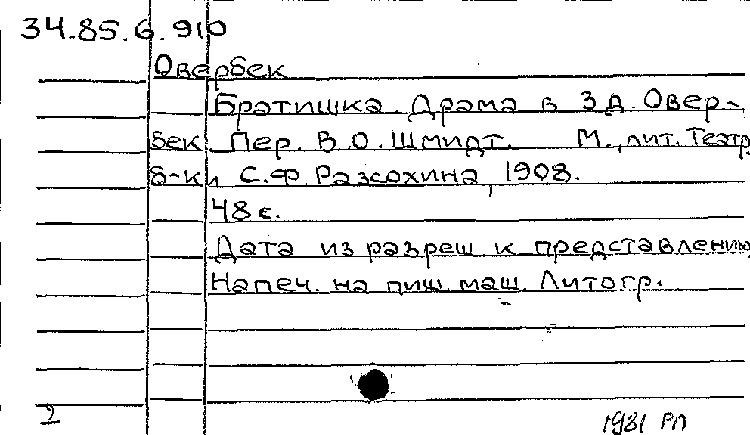 34.85.6.910
Овербек
Братишка. Драма в 3 д. Овер-
бек. Пер. В. О. Шмидт. М., лит. Театр.
б-ки С. Ф. Разсохина, 1908.
48 с.
Дата из разреш. к представлению
Напеч. на пиш. маш. Литогр.
2 1981 РП